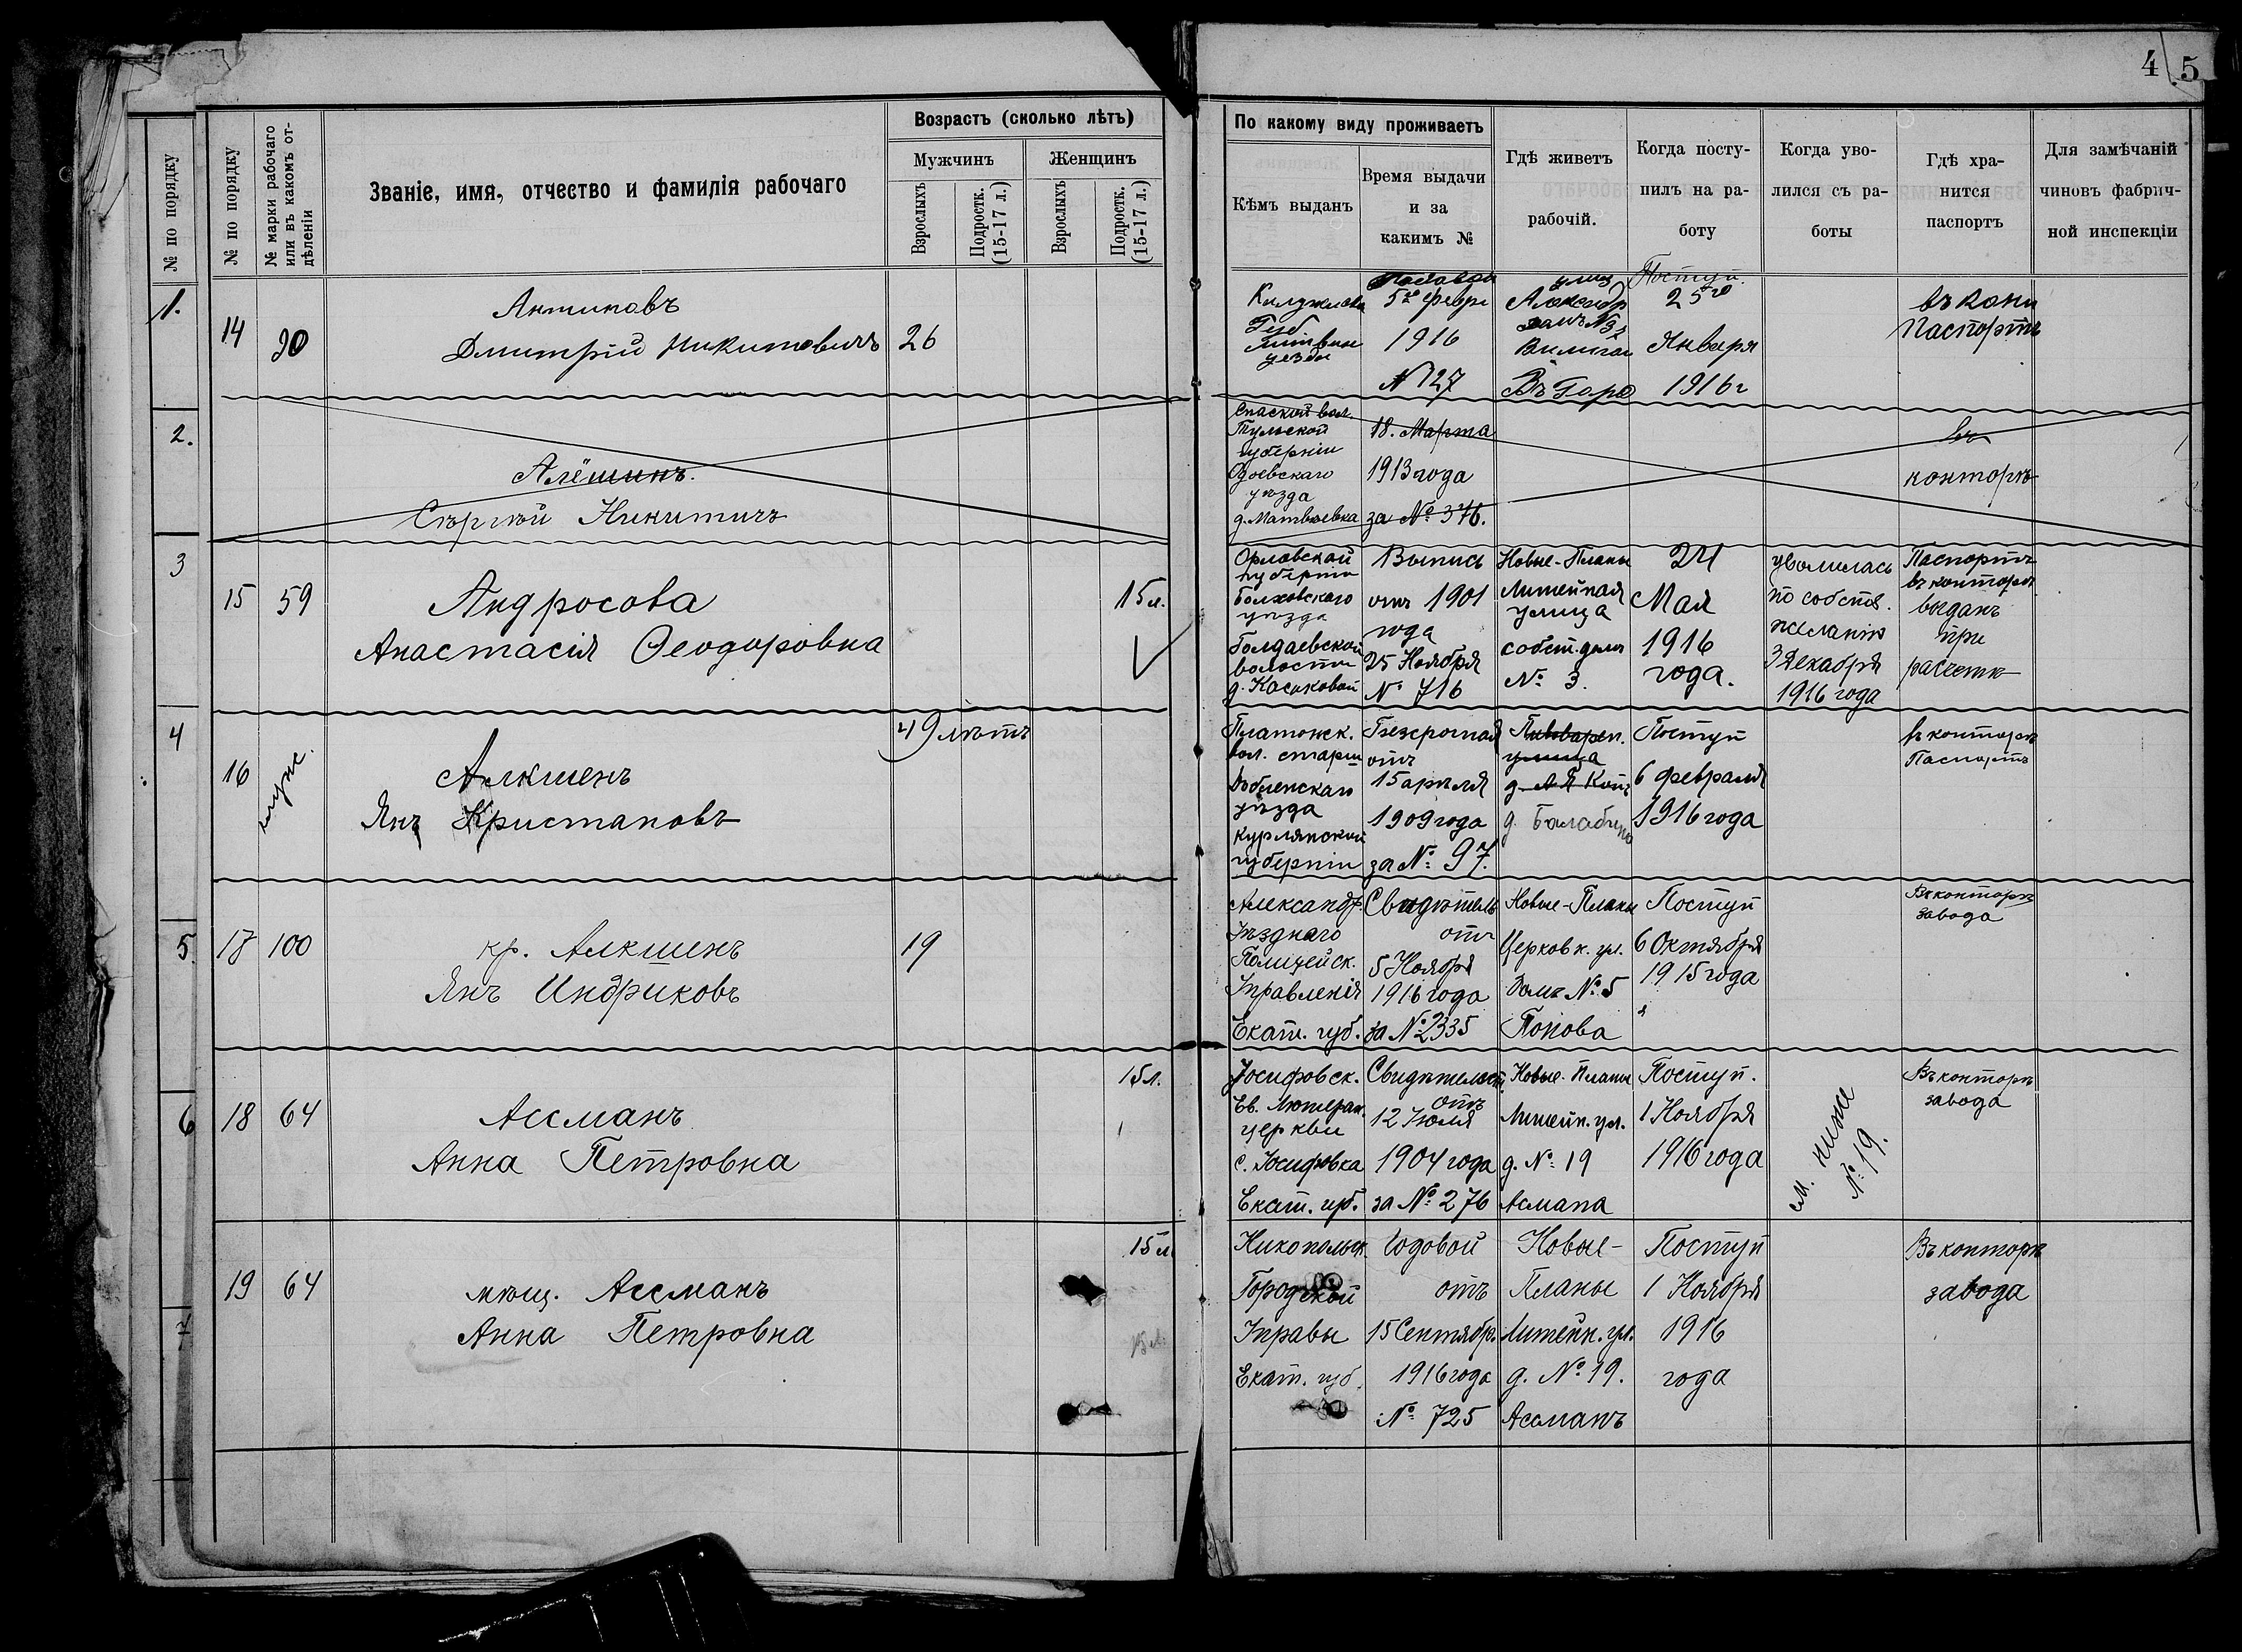 4 5
№ по порядку
№ по порядку
№ марки рабочаго или въ какомъ отдѣленіи
Званіе, имя, отчество и фамилія рабочаго
Возрастъ (сколько лѣтъ)
Мужчинъ
Женщинъ
Взрослыхъ
Подростк. (15-17 л.)
Взрослыхъ
Подростк. (15-17 л.)
По какому виду проживаетъ
Кѣмъ выданъ
Время выдачи
и за
какимъ №
Гдѣ живетъ
рабочій.
Когда посту-
пилъ на ра-
боту
Когда уво-
лился съ ра-
боты
Гдѣ хра-
нится
паспортъ
Для замѣчаній
чиновъ фабрич-
ной инспекціи
1.
14
Антиповъ
Дмитрій Никитовичъ
26
Губ
1916
№ 127
Поступ.
25го
Января
1916 г
Паспортъ
2.
Алёшинъ.
Сергѣй Никитичъ
Спаской вол.
Тульской
губерніи
Одоевскаго
уѣзда
д. Матвѣевка
18. Марта
1913 года
за № 376.
въ
конторѣ
3
15
59
Андросова
Анастасія Ѳеодоровна
15 л.
Орловской
губерніи
Болховскаго
уѣзда
волости
Выпись
отъ 1901
года
25 Ноября
№ 716
Новые-Планы
Литейная
улица
собст. домъ
№ 3.
24
Мая
1916
года.
уволилась
по собств.
желанію
3 Декабря
1916 года
Паспортъ
въ конторѣ
выданъ
при
расчетѣ
4
16
Алкшенъ
Янъ Кристаповъ
49 лѣтъ
Платонск.
вол. старш
Добленскаго
уѣзда
Курлянской
губерніи
отъ
15 апрѣля
1909 года
за № 97.
улица
д. Балабино
Поступ
6 февраля
1916 года
въ конторѣ
Паспортъ
5.
17
100
кр. Алкшенъ
Янъ Индриковъ
19
Александр.
Уѣзднаго
Полицейск.
Управленія
Екат. губ.
Свидѣтель
отъ
5 Ноября
1916 года
за № 2335
Новые-Планы
Церковн. ул.
Домъ № 5
Попова
Поступ
6 Октября
1915 года
Въ конторѣ
завода
6
18
64
Ассманъ
Анна Петровна
15 л.
Іосифовск.
Ев. Лютеран.
церкви
с. Іосифовка
Екат. губ.
Свидѣтельст.
отъ
12 Іюля
1904 года
за № 276
Новые-Планы
Литейн. ул.
д. № 19
Асмана
Поступ.
1 Ноября
1916 года
см. ниже
№ 19.
Въ конторѣ
завода
7
19
64
мѣщ. Ассманъ
Анна Петровна
15 л
15 л.
Никопольск.
Городской
Управы
Екат. губ.
Годовой
отъ
15 Сентябр.
1916 года
№ 725
Новые-
Планы
Литейн. ул.
д. № 19.
Ассманъ
Поступ
1 Ноября
1916
года
Въ конторѣ
завода